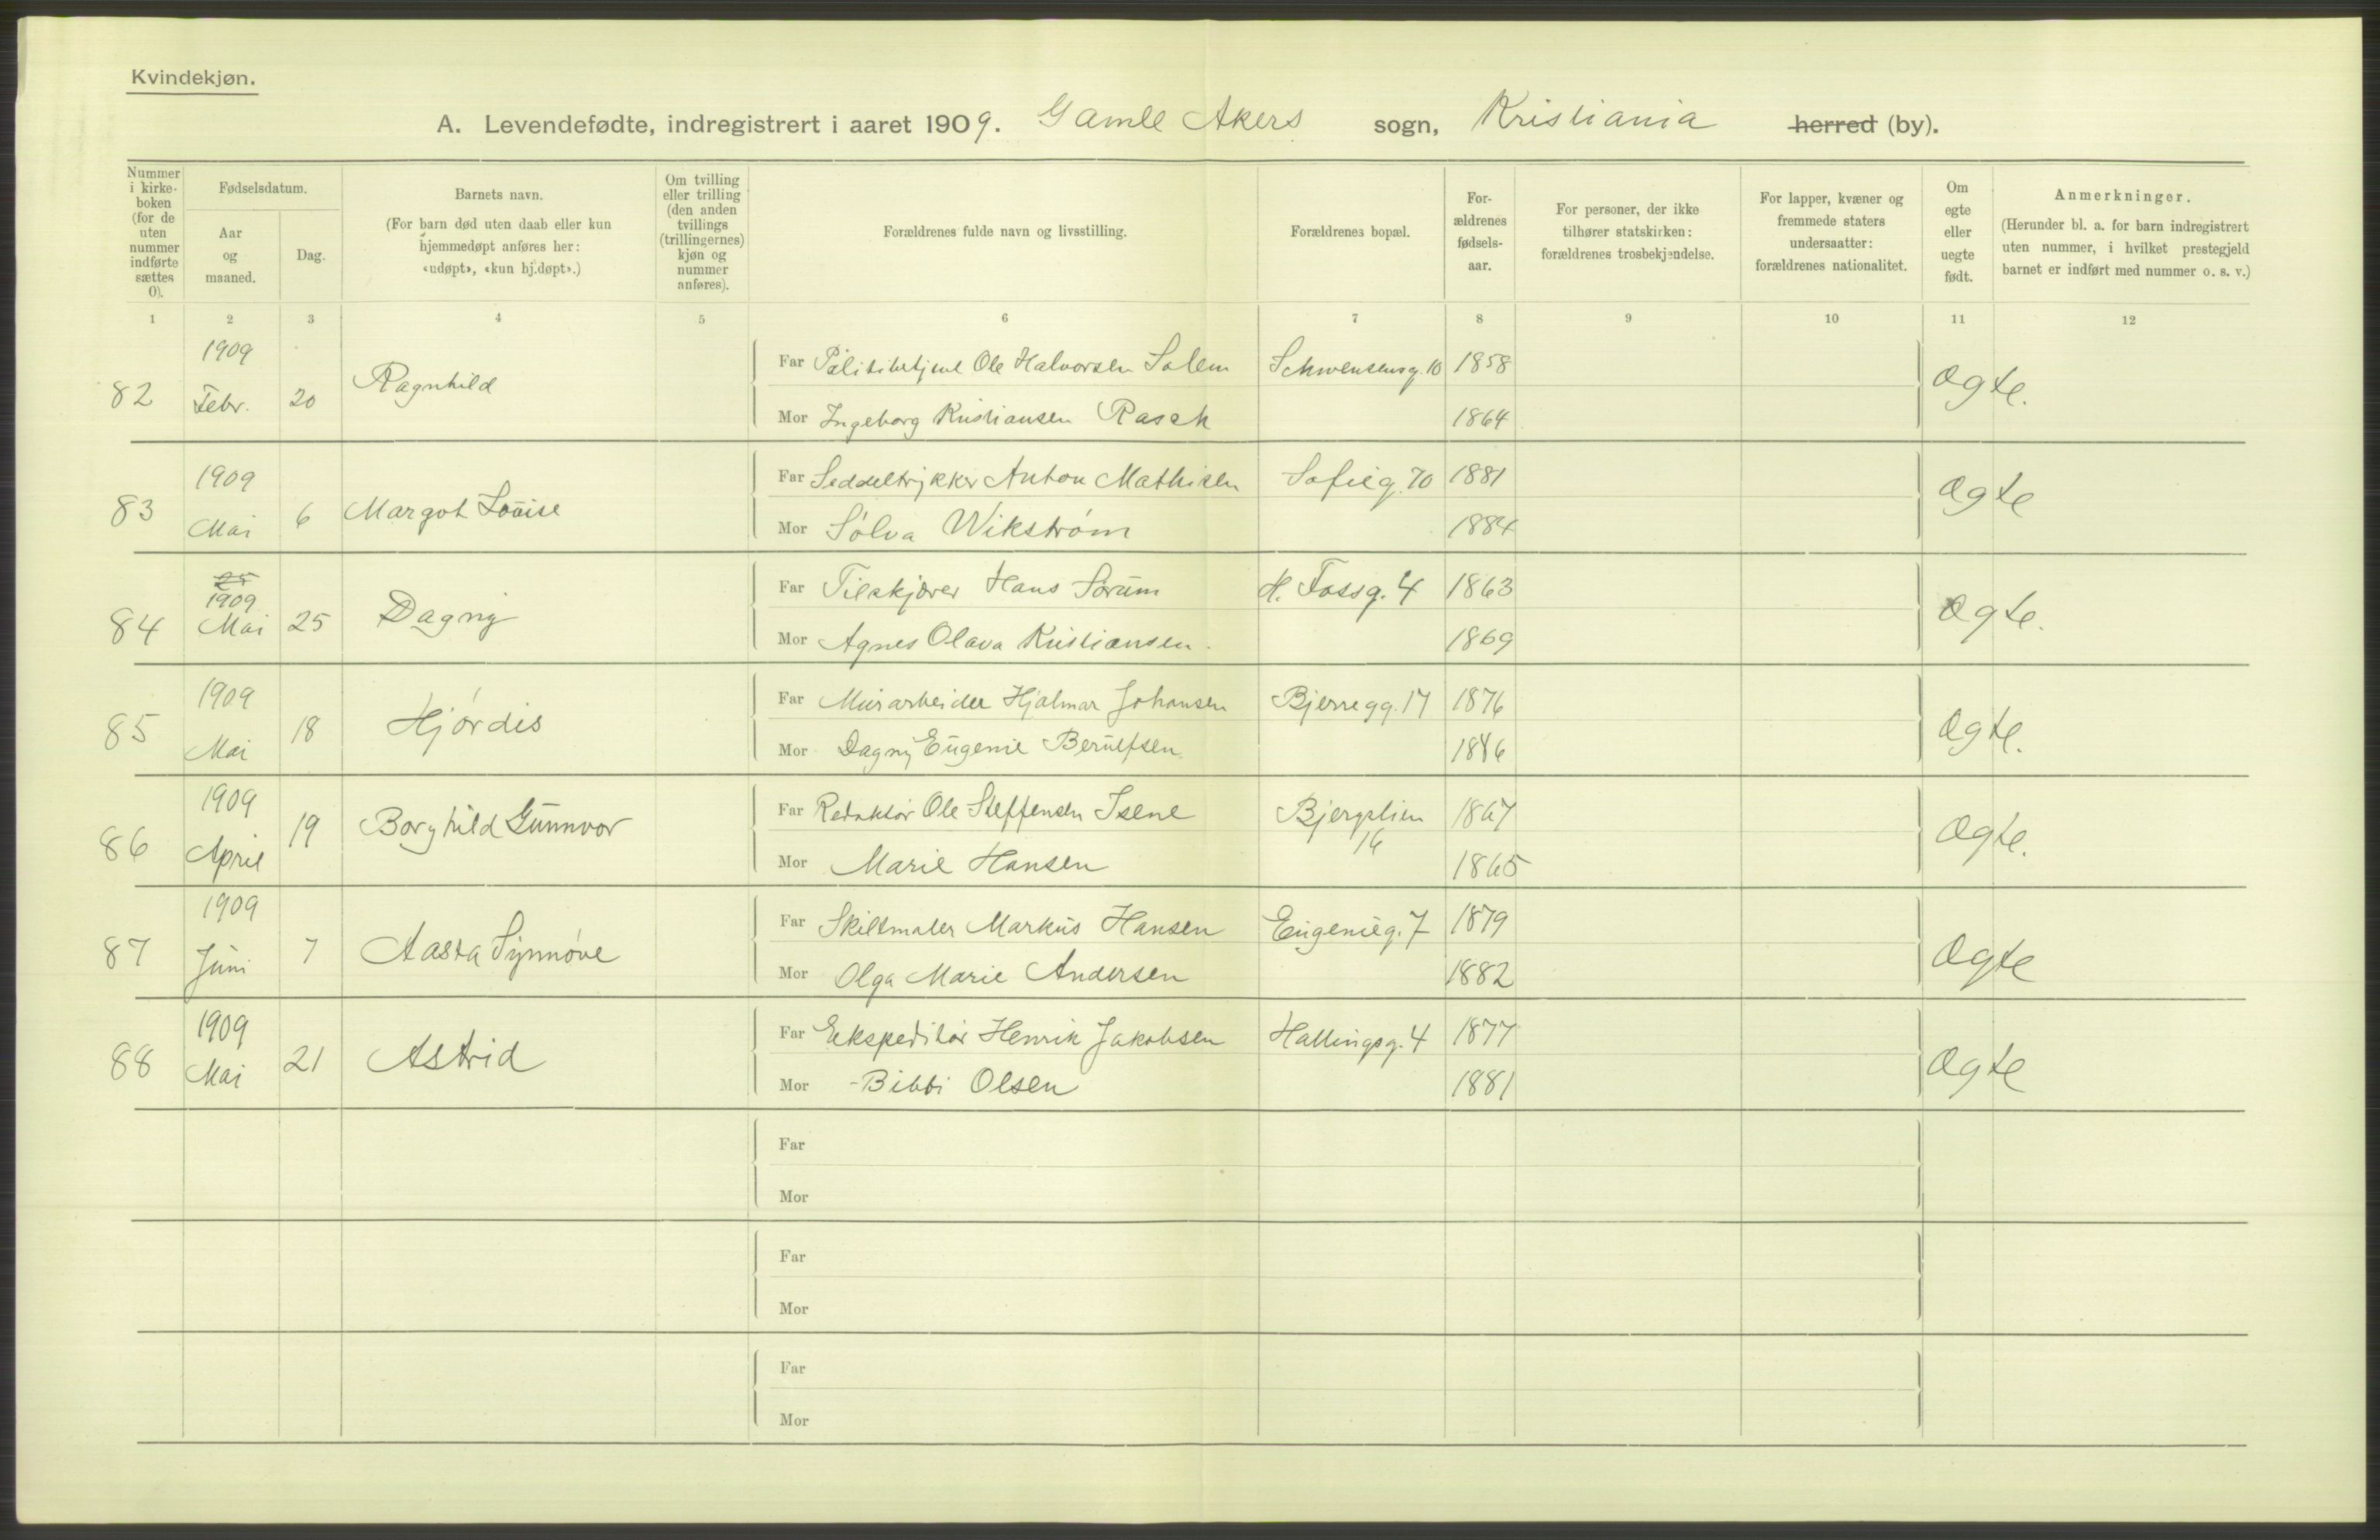 Kvindekjøn.
A. Levendefødte, indregistrert i aaret 1909. Gamle Akers sogn, Kristiania herred (by).
Nummer i kirke-boken (for de uten nummer indførte sættes 0).
Fødselsdatum.
Aar og maaned.
Dag.
Barnets navn.
(For barn død uten daab eller kun hjemmedøpt anføres her: «udøpt», «kun hj.døpt».)
Om tvilling eller trilling (den anden tvillings (trillingernes) kjøn og nummer anføres).
Forældrenes fulde navn og livsstilling.
Forældrenes bopæl.
For-ældrenes fødsels-aar.
For personer, der ikke tilhører statskirken: forældrenes trosbekjendelse.
For lapper, kvæner og fremmede staters undersaatter: forældrenes nationalitet.
Om egte eller uegte født.
Anmerkninger.
(Herunder bl. a. for barn indregistrert uten nummer, i hvilket prestegjeld barnet er indført med nummer o. s. v.)
1 2 3 4 5 6 7 8 9 10 11 12
82 1909 Febr. 20 Ragnhild
Far Politibetjent Ole Halvorsen Solem Schwensensg. 10 1858 Ægte.
Mor Ingeborg Kristiansen Rasch 1864
83 1909 Mai 6 Margot Louise
Far Seddeltrykker Anton Mathisen Sofieg. 70 1881 Ægte
Mor Sólva Wikstróm 1884
84 25 1909 Mai 25 Dagny
Far Tilskjærer Hans Sørum H. Fossg. 4 1863 Ægte.
Mor Agnes Olava Kristiansen. 1869
85 1909 Mai 18 Hjórdis
Far Murarbeider Hjalmar Johansen Bjerregg. 17 1876 Ægte.
Mor Dagny Eugenie Berulfsen
86 1909 April 19 Borghild Gunnvor
Far Redaktór Ole Steffensen Isene Bjergslien 16 1867 Ægte.
Mor Marie Hansen 1865
87 1909 Juni 7 Aasta Synnóve
Far Skiltmaler Markus Hansen Eugenieg. 7 1879 Ægte
Mor Olga Marie Andersen 1882
88 1909 Mai 21 Astrid
Far Ekspeditór Henrik Jakobsen Hallingsg. 4 1877 Ægte
Mor Bibbi Olsen 1881
Far
Mor
Far
Mor
Far
Mor